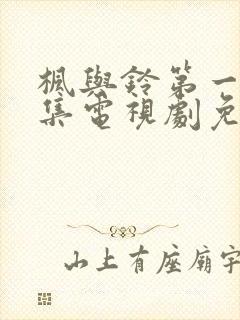 楓與鈴第一
集電視劇免
山上有座廟宇